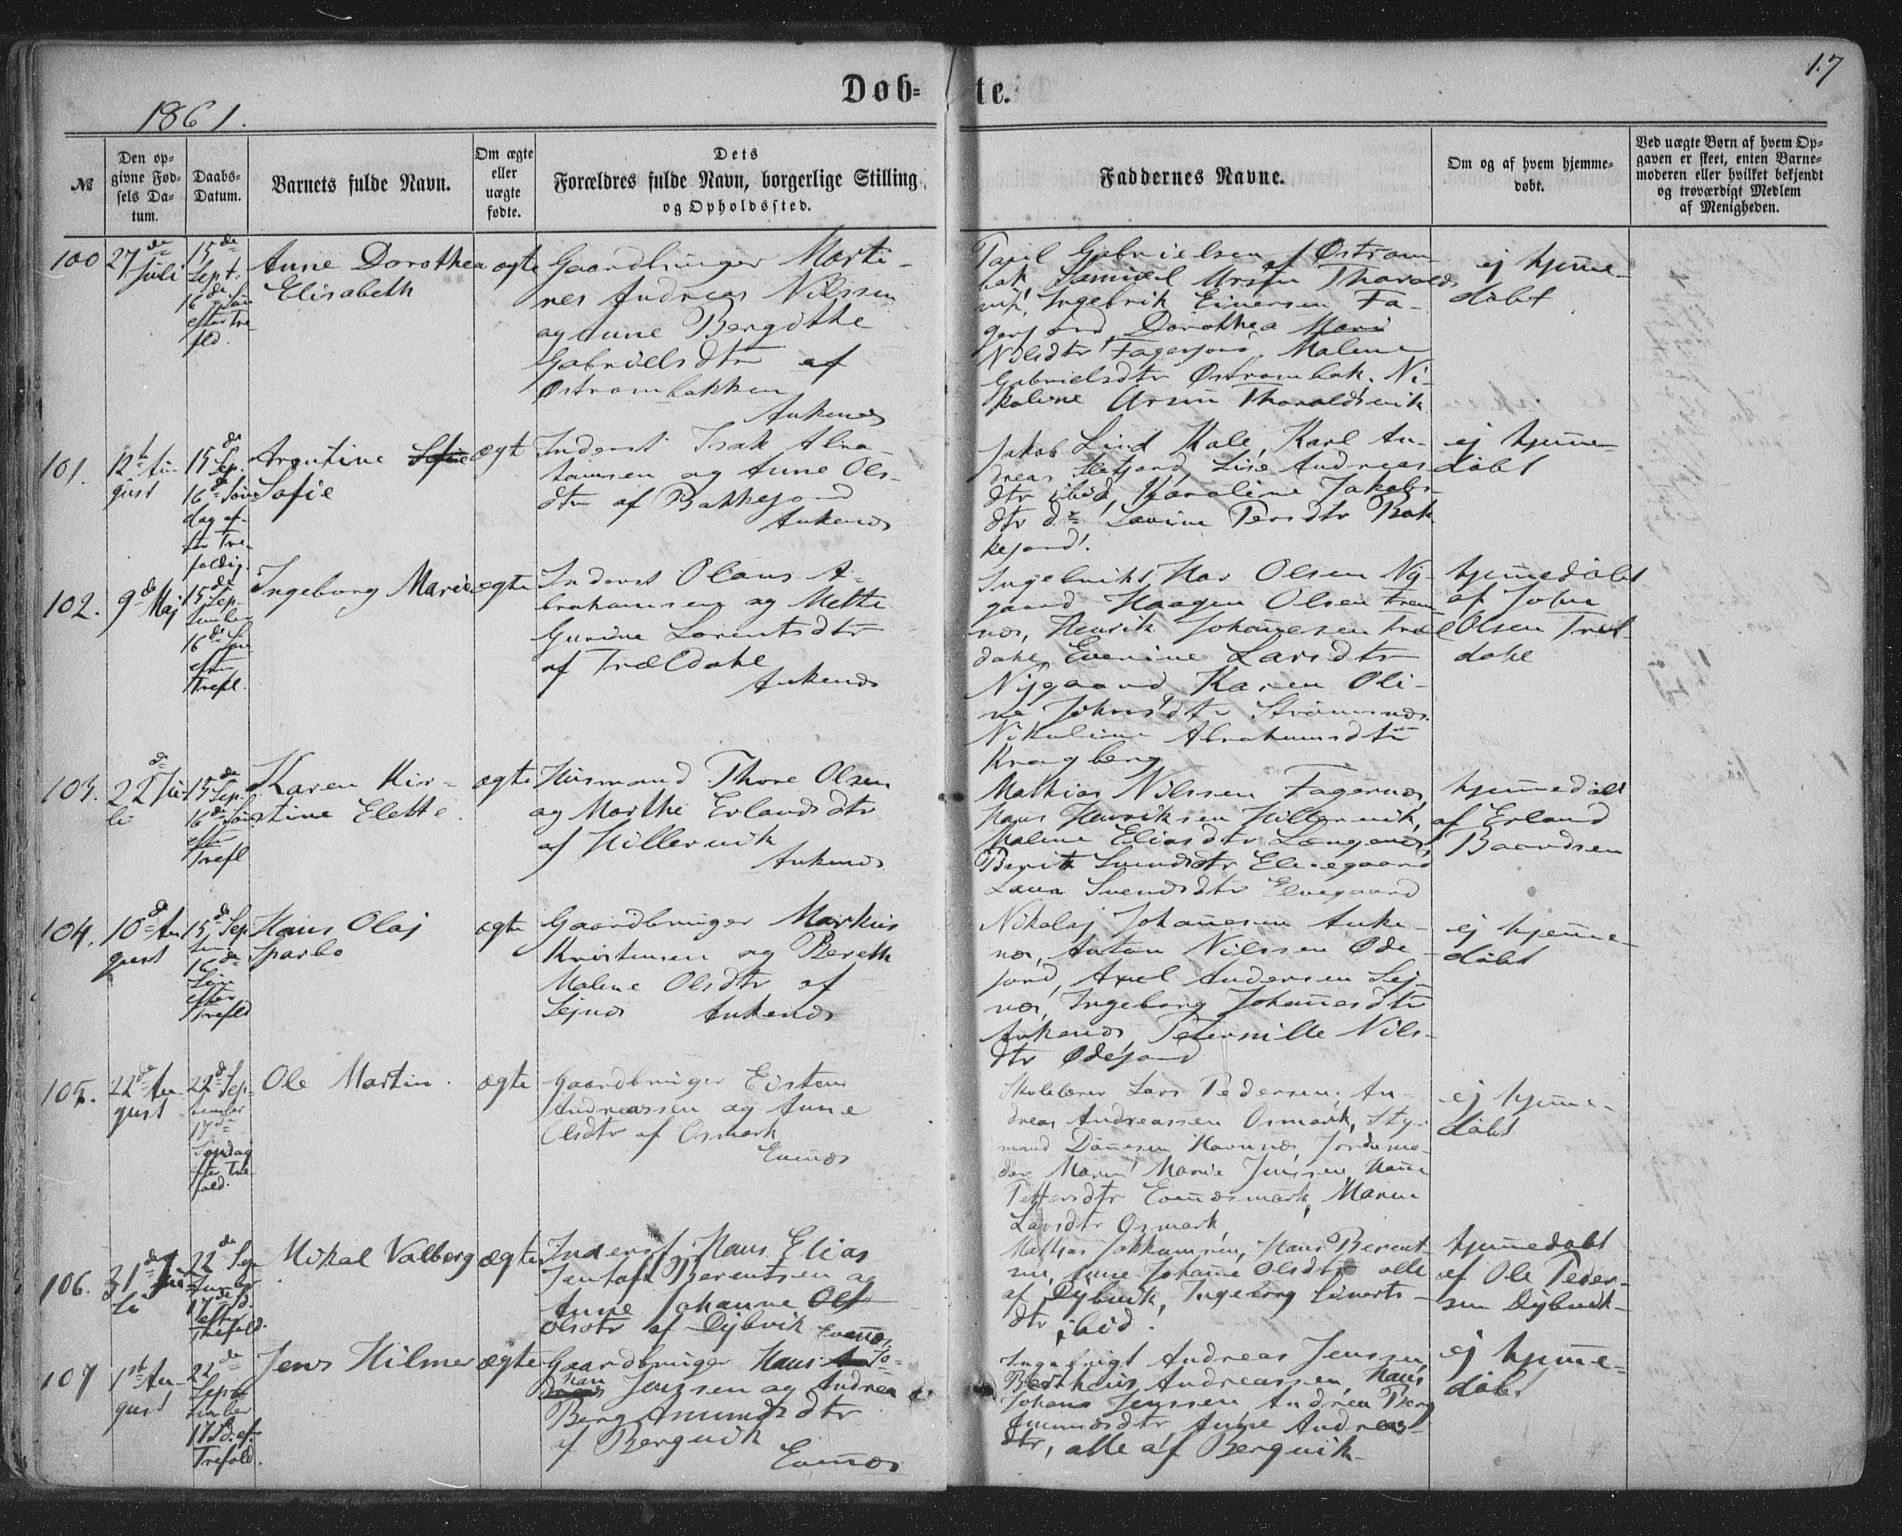 17
Døb-te.
1861.
№
Den op-
givne Fød-
sels Da-
tum.
Daabs-
Datum.
Barnets fulde Navn.
Om ægte
eller
uægte
fødte.
Dets
Forældres fulde Navn, borgerlige Stilling
og Opholdssted.
Faddernes Navne.
Om og af hvem hjemme-
døbt.
Ved uægte Børn af hvem Op-
gaven er skeet, enten Barne-
moderen eller hvilket bekjendt
og troværdigt Medlem
af Menigheden.
100
27de
Juli
15de
Sept.
16de Søn
efter Tre
fld.
Anne Dorothea
Elisabeth
ægte
Gaardbruger Marti-
nes Andreas Nilssen
og Anne Bergithe
Gabrielsdtr af
Østrombakken
Ankenæs
Gabrielsen af Østrom
bak, Samuel Ursin Tharalds
vik, Ingebrik Einersen Fa-
gerfjord, Dorothea Marie
Nilsdtr Fagerfjord, Malene
Gabrielsdtr Østrombak, Ni-
koline Ursin Tharaldsvik
ej hjemme-
døbt
101.
12te Au-
gust
15de
Sep.
16de Søn
dag ef-
ter Tre
foldig.
Arentine Sofie
Sofie
ægt
Inderst Isak Abra
hamsen og Anne Ols-
dtr af Bakkejord
Ankenæs
Jakob Lind Kale, Karl An-
dreas Lise Andreas
dtr ibid, Karoline Jakobs-
dtr do Lovine Persdtr Bak
kejord.
ej hjemme-
døbt
102.
9de Maj
15de
Sep-
tember
16de Søn
efter
Trefl.
Ingeborg Marie
ægte
Inderst Olaus A-
brahamsen og Mette
Gurine Lorentsdtr
af Trældahl
Ankenæs
Ingebrikt Olsen Ny-
gaard Haagen Olsen
næs, Henrik Johannesen Træl
dahl, Everine Larsdtr
Nygaard Karen Oli-
ne Johnsdtr Strømsnæs
Nikoline Abrahamsdtr
Kragberg
hjemmedøbt
af John
Olsen Træl-
dahl
103.
22de Ju-
li
15de
Sep.
16de Søn
efter
Trefl
Karen Kir-
stine Elette.
ægte
Husmand Thore Olsen
og Marthe Erlandsdtr
af Hillervik
Ankenæs
Mathias Nilssen Fagernæs,
Hans Henriksen Hillervik,
Malene Eliasdtr Længenæs,
Berit Svendsdtr Elvegaard
Lava Svendsdtr Elvegaard
hjemmedøbt
af Erland
Baardsen
104.
10de Au
gust
15de Sep
16de
Søn
efter
Trefld
Hans Olaj
Sparbo
ægte
Gaardbruger Markus
Kristensen og Bereth
Malene Olsdtr af
Lejnæs Ankenæs
Nikolaj Johannesen Anke-
næs, Anton Nilssen Øde-
jord, Axel Andersen Lej-
næs, Ingeborg Johannesdtr
Ankenæs, Peternille Nils-
dtr Ødejord
ej hjemme-
døbt
105.
22de Au-
gust
22de Sep-
tember
17de
Søndag
efter Tre
fold.
Ole Martin.
ægte
Gaardbruger Eisten
Andreassen og Anne
Olsdtr af Osmark
Evenæs
Skolelærer Lars Pedersen, An-
dreas Andreassen Osmark, Sty-
mand Havnnæs, Jordemo-
der Maren Marie Jenssen, Hanne
Pettersdtr Evenæsmark, Maren
Larsdtr Osmark
ej hjemme-
døbt
106.
31de Ju-
li
22de Sep
tember
17de S.
efter
Trefold.
Mikal Valberg
ægte
Inderst Hans Elias
Jentoft Berentsen og
Anne Johanne Ols
Olsdtr af Dybvik Evenæs
Mathias Johannsen, Hans Berent-
sen, Anne Johanne Olsdtr alle
af Dybvik, Ingeborg Einerts-
dtr ibid.
hjemmedøbt
af Ole Peder-
sen Dybvik
107
1ste Au-
gust
22de
Septe
mber
17 S. ef.
Trefold.
Jens Hilmer
ægte
Gaardbruger Hans Jo-
han Jenssen og Andrea
Berg Amundsdtr
af Bergvik
Evenæs
Ingebrigt Andreas Jenssen,
Bertheus Andreassen, Hans
Johans Jenssen Andrea Berg
Ammundsdtr Anne Andreas-
dtr, alle af Bergvik
ej hjemme-
døbt